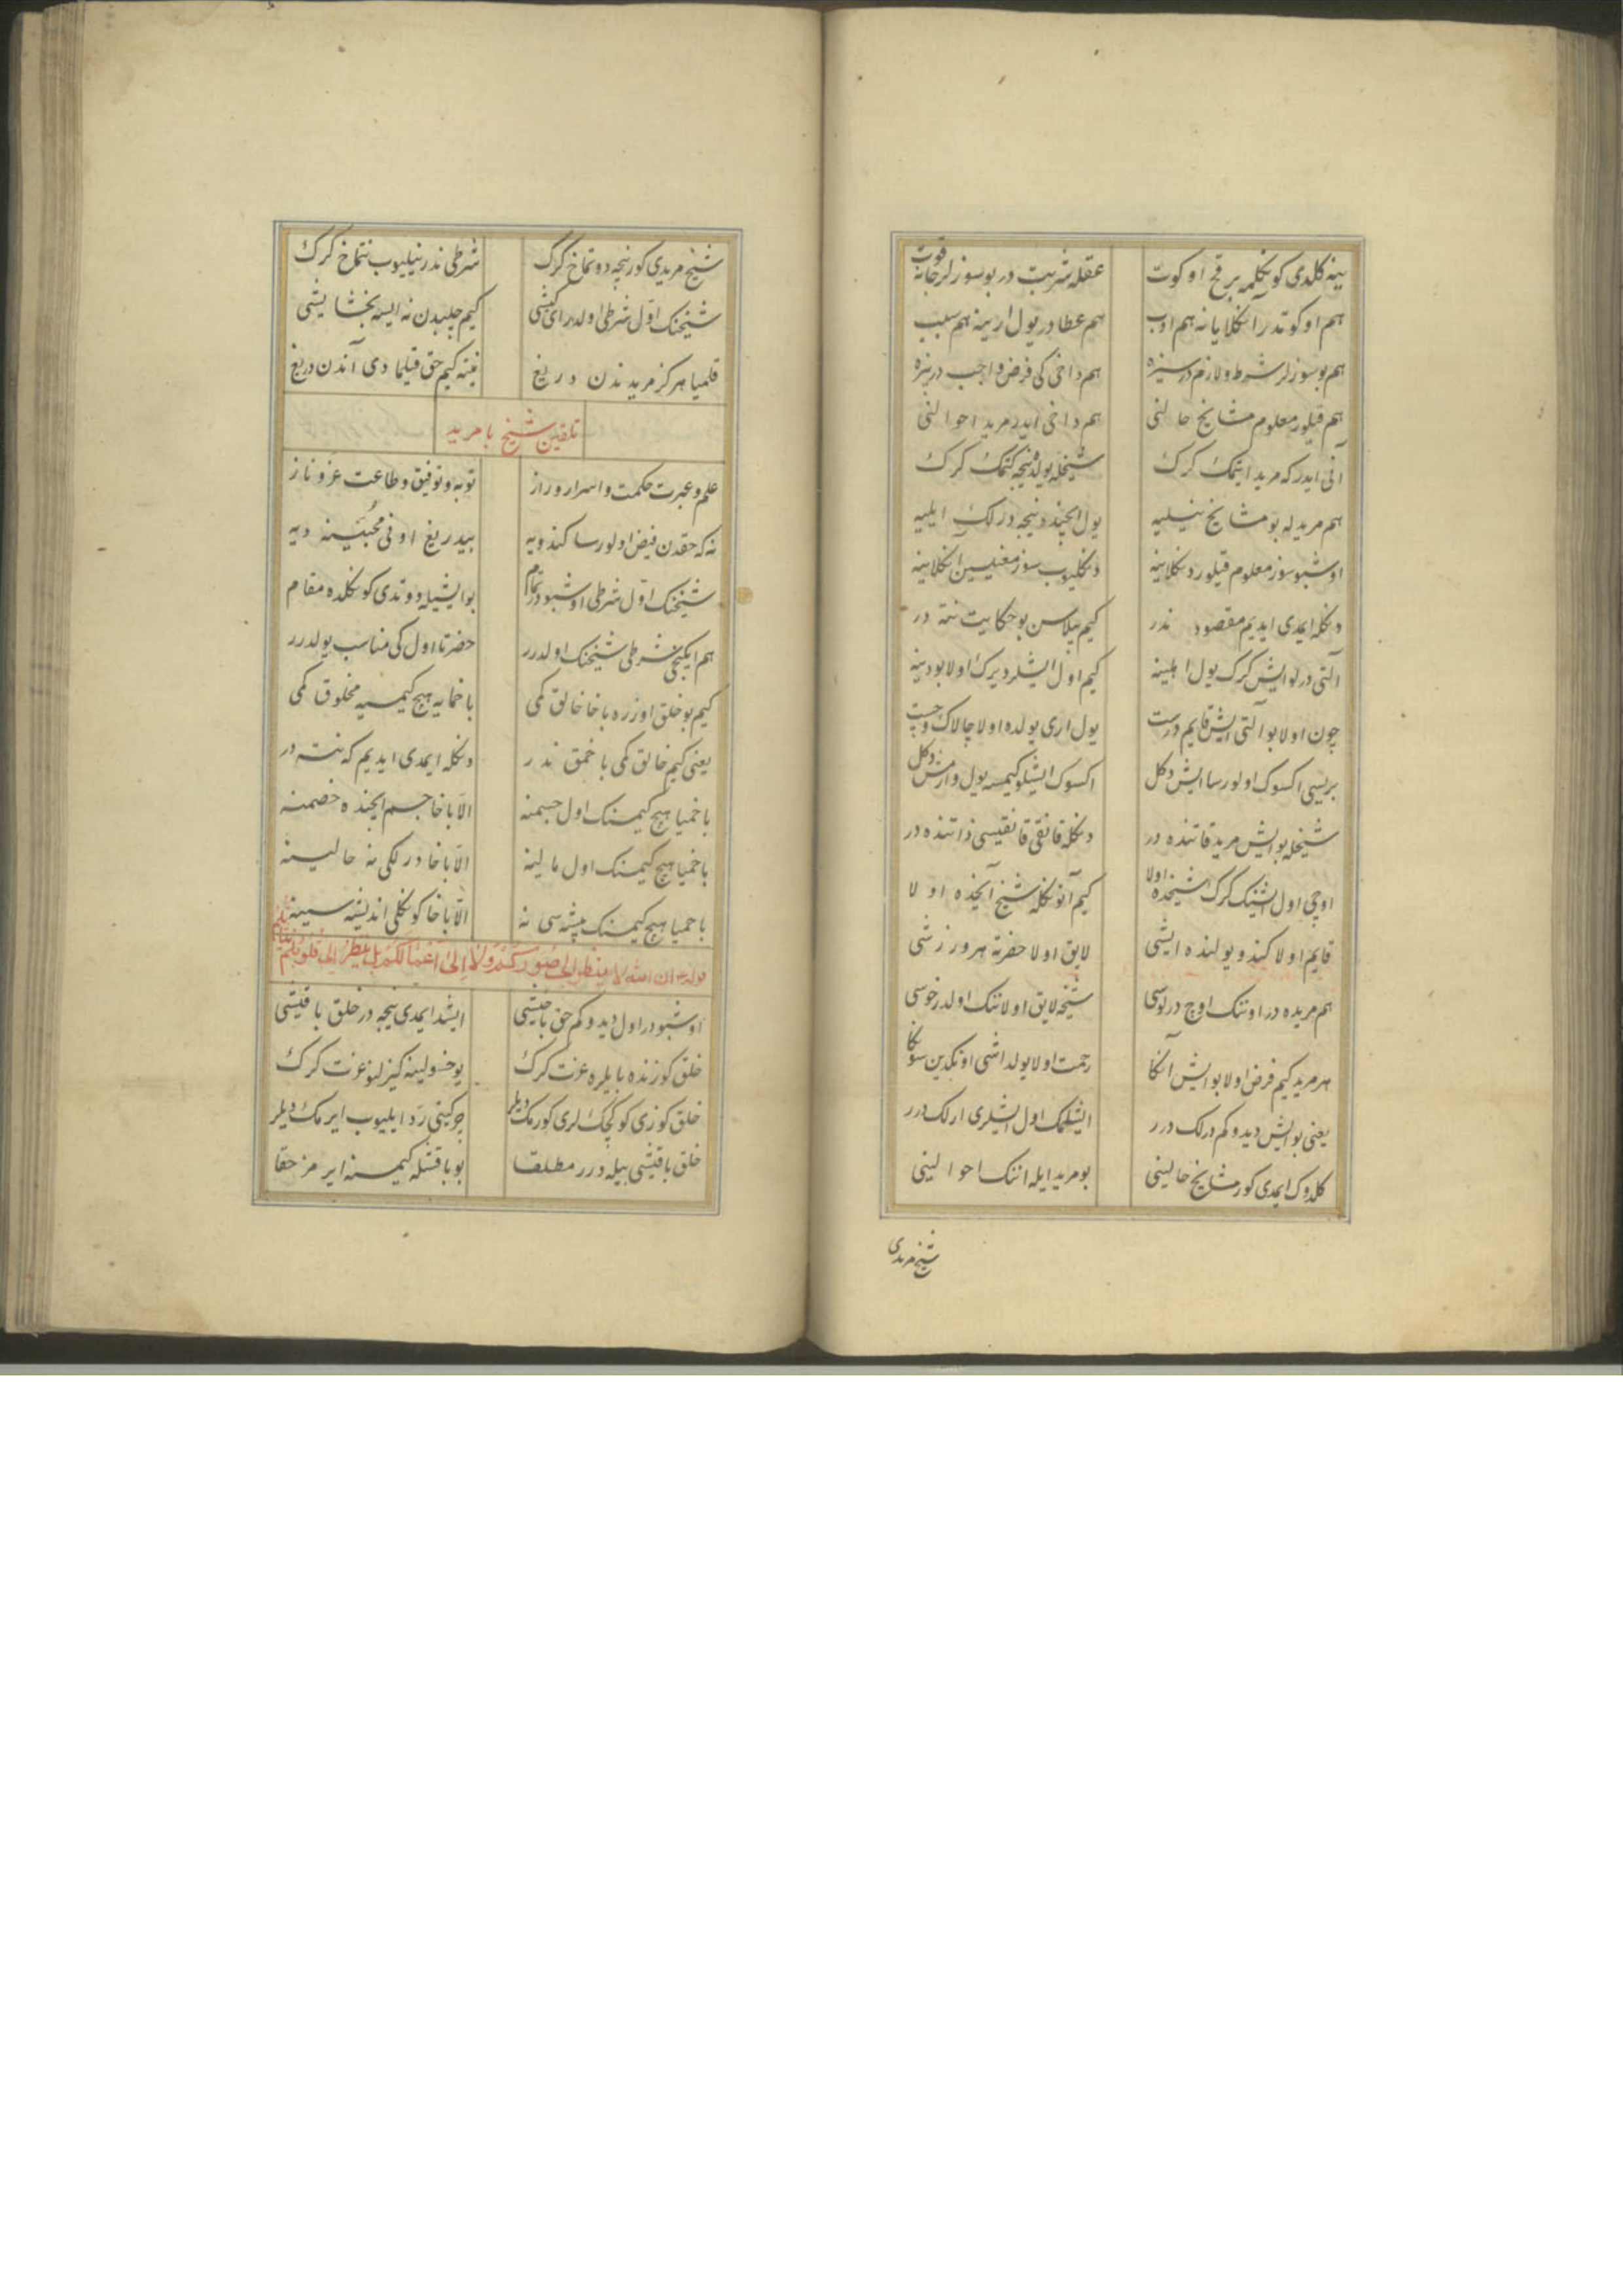 ینه كلدی كوكلمه بر قچ اوكوت عقله شربت در بو سوزلر جانه قوت
هم اوكوتدر آكلایانه هم ادب هم عطادر یول ارینه هم سبب
هم بو سوزلر شرط و لازم در سیزه هم داخی كی فرض و اجب در بزه
هم قیلور معلوم مشایخ حالنی هم داخی ایدر مرید احوالنی
آنی ایدر كه مرید ایتمك كرك شیخله یولده نیجه كتمك كرك
هم مریدله بو مشایخ نیلیه یول ایچنده نیجه درلك ایلیه
اوشبو سوز معلوم قیلور دكلاینه دكلیوب سوز معنیسین آكلاینه
دكله ایمدی ایدیم مقصود ندر كیم بیلاسن بو حكایت ننه در
آلتی درلو ایش كرك یول اهلینه كیم اول ایشلر دیرك اولا بو دینه
چون اولا بو آلتی ایش قایم درست یول اری یولده اولا چالاك و چست
بریسی اكسوك اولورسا ایش دكل اكسوك ایشلو كیمسه یول وارمش دكل
شیخله بو ایش مرید قاتنده در دكله قانقی قانقیسی ذاتنده در
اوچی اول ایشنك كرك شیخده اولا كیم آنوكله شیخ آیخده اولا
قایم اولا كندو یولنده ایشی لایق اولا حضرته هر ورزشی
هم مریده در اوننك اوچ درلوسی شیخه لایق اولاننك اولدر خوسی
هر مرید كیم فرض اولا بو ایش آكا رحمت اولا یولداشی اوكدین سوكا
یعنی بو ایش دیدوكم درلك درر ایشلمك اول ایشلری ارلك درر
كلدوك ایمدی كور مشایخ حالینی بو مرید ایله اننك احوالینی
شیخ مریدی
شیخ مریدی كور نیجه دوتماخ كرك شرطی ندر نیلیوب نتماخ كرك
شیخنك اول شرطی اولدر ای كیشی كیم چلبدن نه ایسه بخشایشی
قلمیا هركز مریدندن دریغ نیته كیم حق قیلمادی آندن دریغ
تلقین شیخ با مرید
علم و عبرت حكمت و اسرار و راز توبه و توفیق و طاعت عز و ناز
نه كه حقدن فیض اولورسا كندویه بیدریغ اونی محبینه دیه
شیخنك اول شرطی اوشبودر تمام بو ایشیله دوتدی كوكلده مقام
هم ایكنجی شرطی شیخنك اولدرر حضرتا اول كی مناسب یولدرر
كیم بو خلق اوزره باخا خالق كمی باخمایه هیچ كیمسیه مخلوق كمی
یعنی كیم خالق كمی باخمق ندر دكله ایمدی ایدیم كه ننه در
باخمیا هیچ كیمسنك اول جسمنه الا باخا جسم ایچنده خصمنه
باخمیا هیچ كیمسنك اول مالینه الا باخا درلكی نه حالینه
باخمیا هیچ كیمسنك پیشه سی نه الا باخا كوكلی اندیشه سینه
قوله ان الله لا ینظر الی صوركم ولا الی اعمالكم بل ینظر الی قلوبكم و نیاتكم
اوشبودر اول دیدوكم حق باخیشی ایشد ایمدی نیجه در خلق باقیشی
خلق كوزنده بایلره عزت كرك یوخسولینه كیزلنو عزت كرك
خلق كوزی كوكچك لری كورمك دیلر چركینی رد ایلیوب ایرمك دیلر
خلق باقیشی بیله درر مطلقا بو باقشله كیمسنه ایرمز حقا